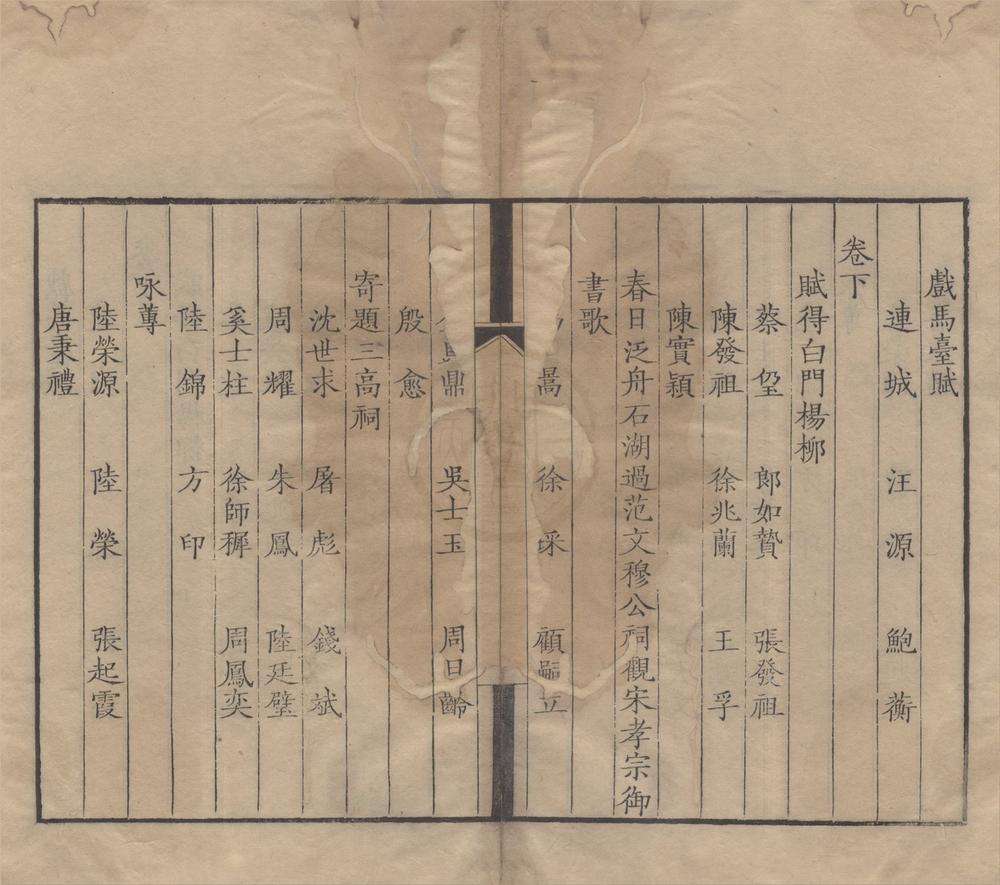 戲馬臺賦
連城 汪源 鮑蘅
卷下
賦得白門楊柳
蔡䂓 郎如贄 張發祖
陳發祖 徐兆蘭 王孚
陳實穎
春日泛舟石湖過范文穆公祠觀宋孝宗御
書歌
暠 徐采 顧嗣立
鼎 吳士玉 周日齡
殷愈
寄題三高祠
沈世求 屠彪 錢斌
周耀 朱鳳 陸廷璧
奚士柱 徐師穉 周鳳奕
陸錦 方印
咏蓴
陸榮源 陸榮 張起霞
唐秉禮